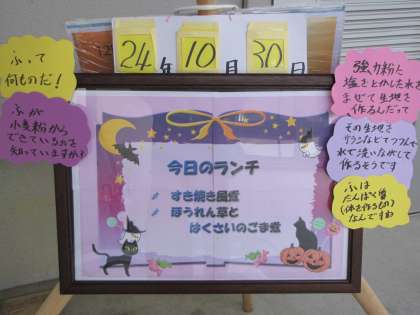 24年10月30日
ふって
何ものだ！
ふが
小麦粉から
できているのを
知っていますか？
今日のランチ
すき焼き風煮
ほうれん草と
はくさいのごま煮
強力粉と
塩をとかした水を
まぜて生地を
作るんだって
その生地を
水で洗いながして
作るそうです
ふは
たんぱく質
(体を作るもの)
なんですね